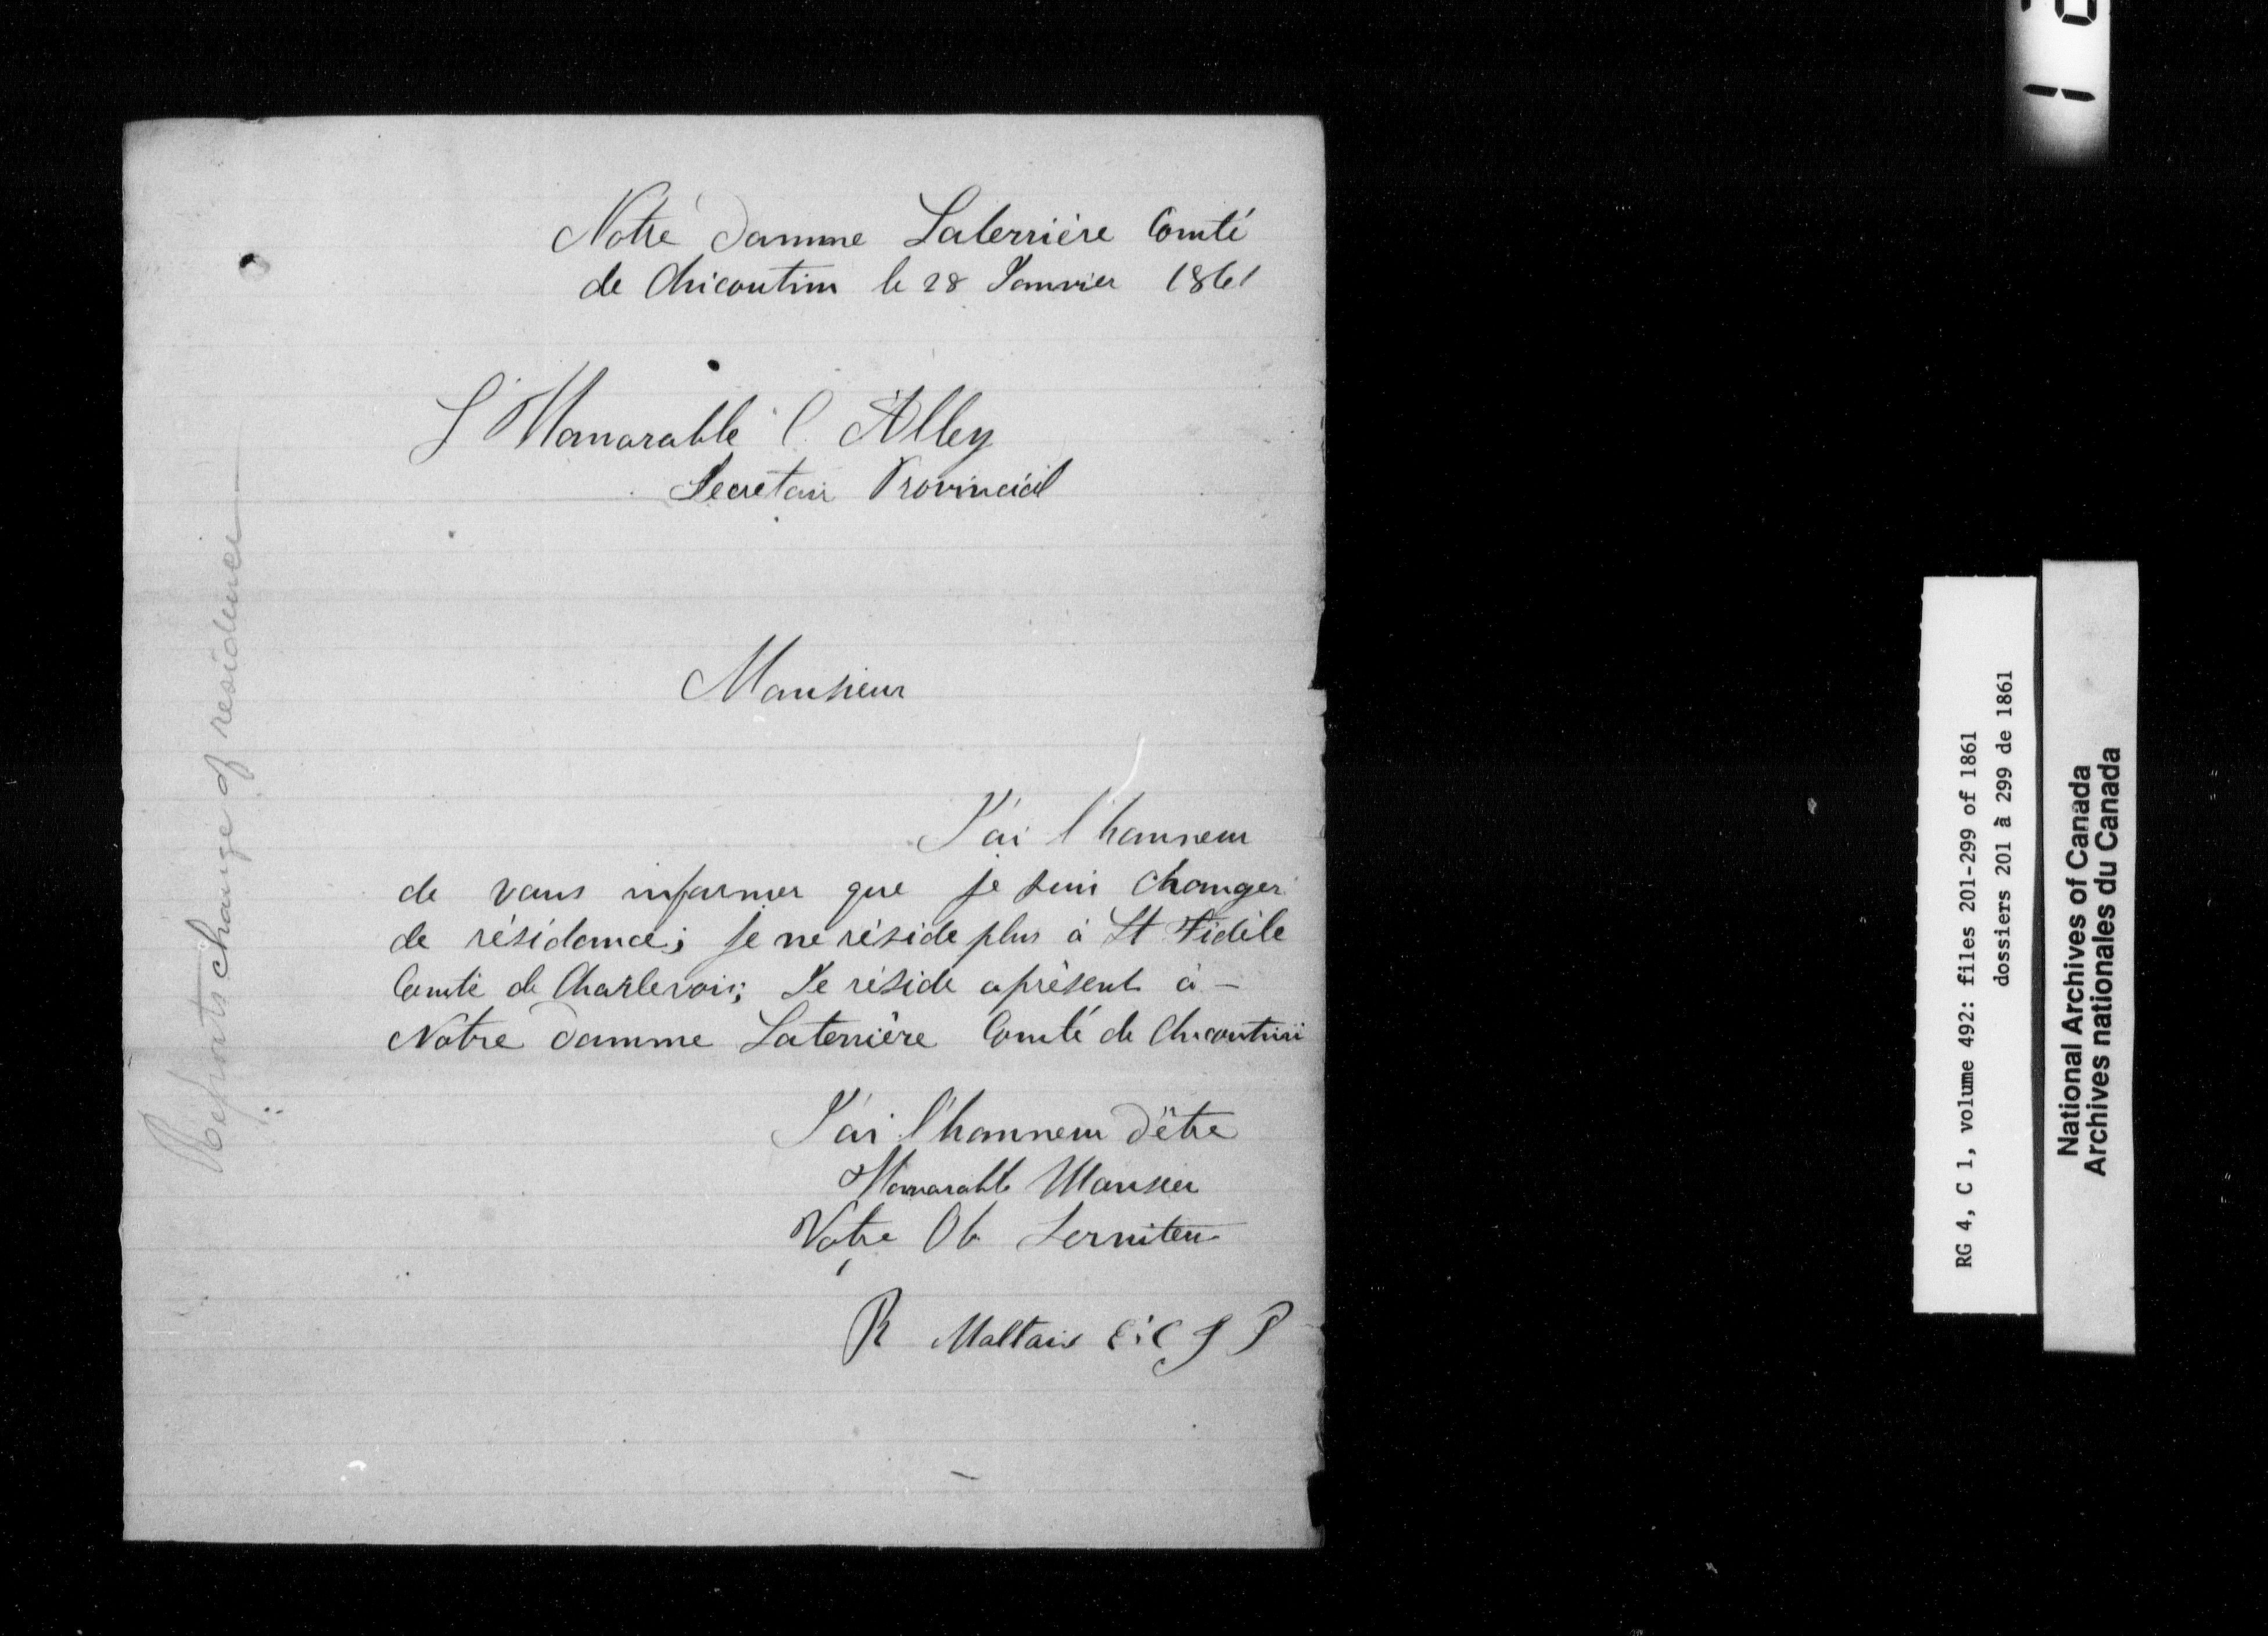 Notre Damme Laterrière Comté
de Chicoutim le 28 Janvier 1861
L'Honorable C. Alley
Secretair Provincial
Monsieur
J'ai l'honneur
de vous informer que je suis changer
de résidance; je ne réside plus à St Fidèle
Comté de Charlevoix; Je réside aprèsent à -
Notre Damme Laterrière Comté de Chicoutimi
J'ai l'honneur d'être
Honorable Monsieu
Votre Ob Serviteu
R Maltais E:C J P
Reports change of residence
RG 4, C 1, volume 492: files 201-299 of 1861
dossiers 201 à 299 de 1861
National Archives of Canada
Archives nationales du Canada